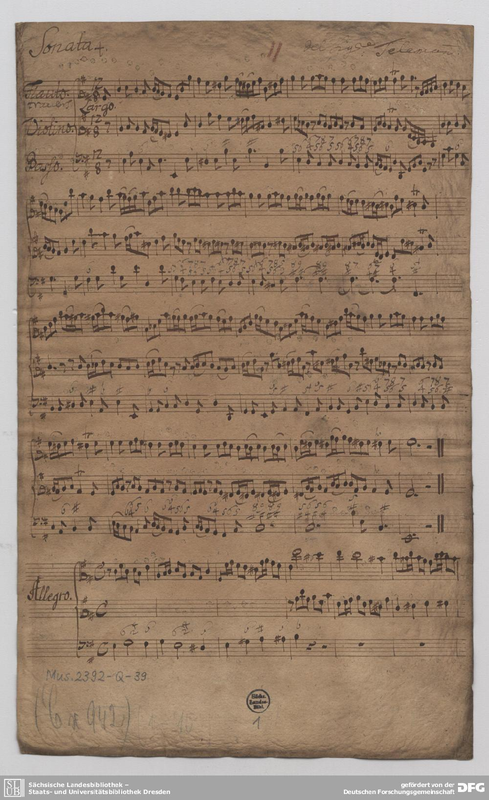 Sonata
Flauto
travers
Largo.
Violino.
Basso.
Allegro.
Mus. 2392-Q-39
1
SLUB
Sächsische Landesbibliothek –
Staats- und Universitätsbibliothek Dresden
gefördert von der
Deutschen Forschungsgemeinschaft
DFG